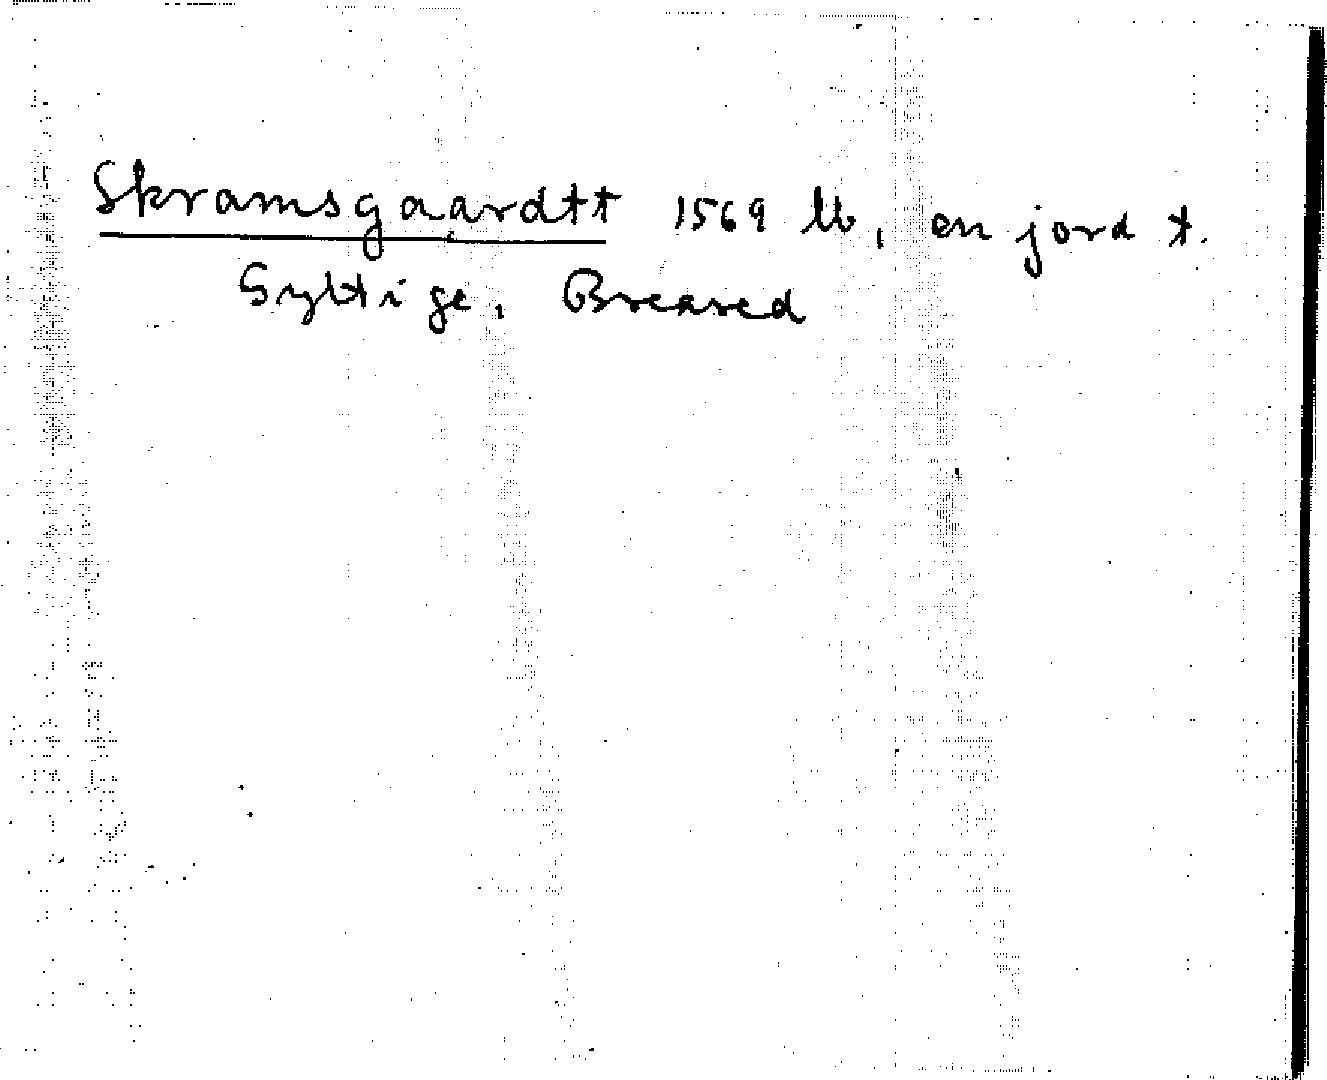 Skramsgaardtt 1569 lb, en jord t.
Syltige, Breared